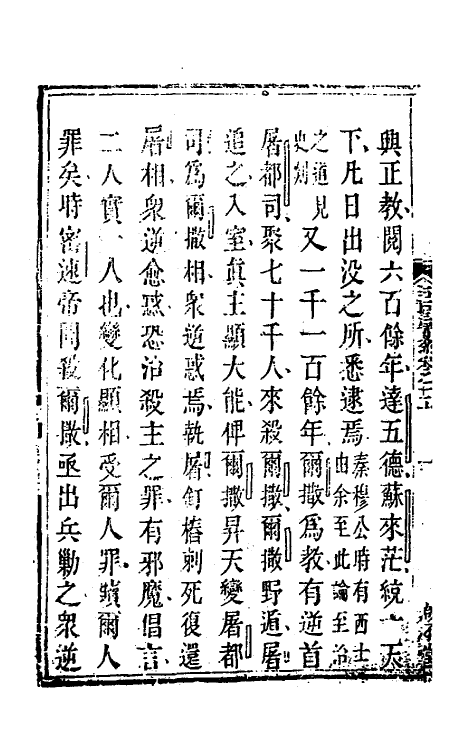 興正教閱六百餘年達五德蘇來茫統六天
下凡日出没之所悉逮焉秦穆公時有西士由余至此論至治
之道見史刻又一千一百餘年爾撒為教有逆首
屠都司聚七十千人來殺爾撒爾撒野遁屠
追之入室真主顯大能俾爾撒昇天變屠都
司為爾撒相衆逆惑焉執屠釘樁刺死復還
屠相衆逆愈惑恐治殺主之罪有邪魔倡言
二人實一人也變化顯相受爾人罪贖爾人
罪矣時密速帝聞殺爾撒亟出兵勦之衆逆